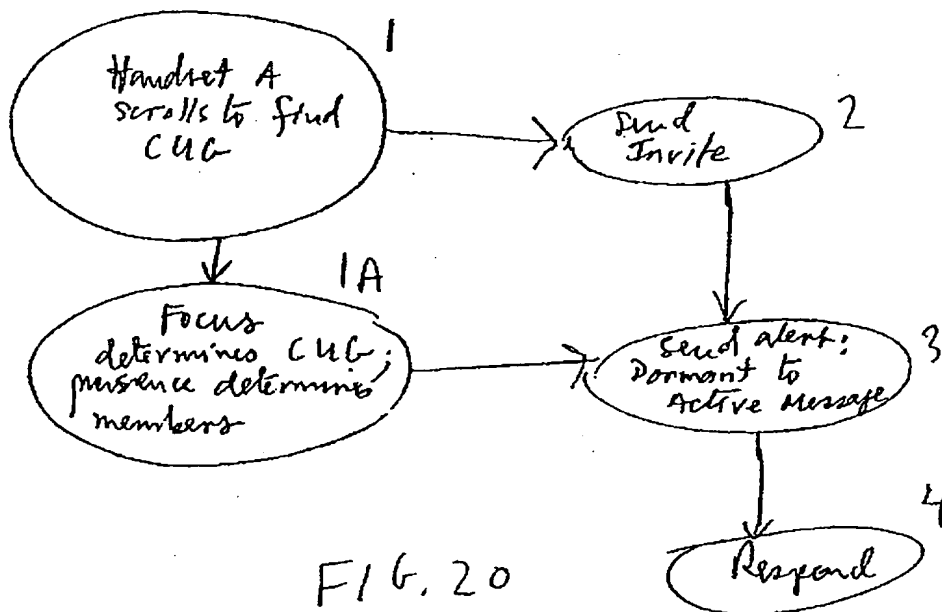 1
Handset A
scrolls to find
CUG
2
Send
Invite
1A
Focus
determines CUG;
presence determines
members
3
Send alert:
Dormant to
Active Message
4
Respond
FIG. 20